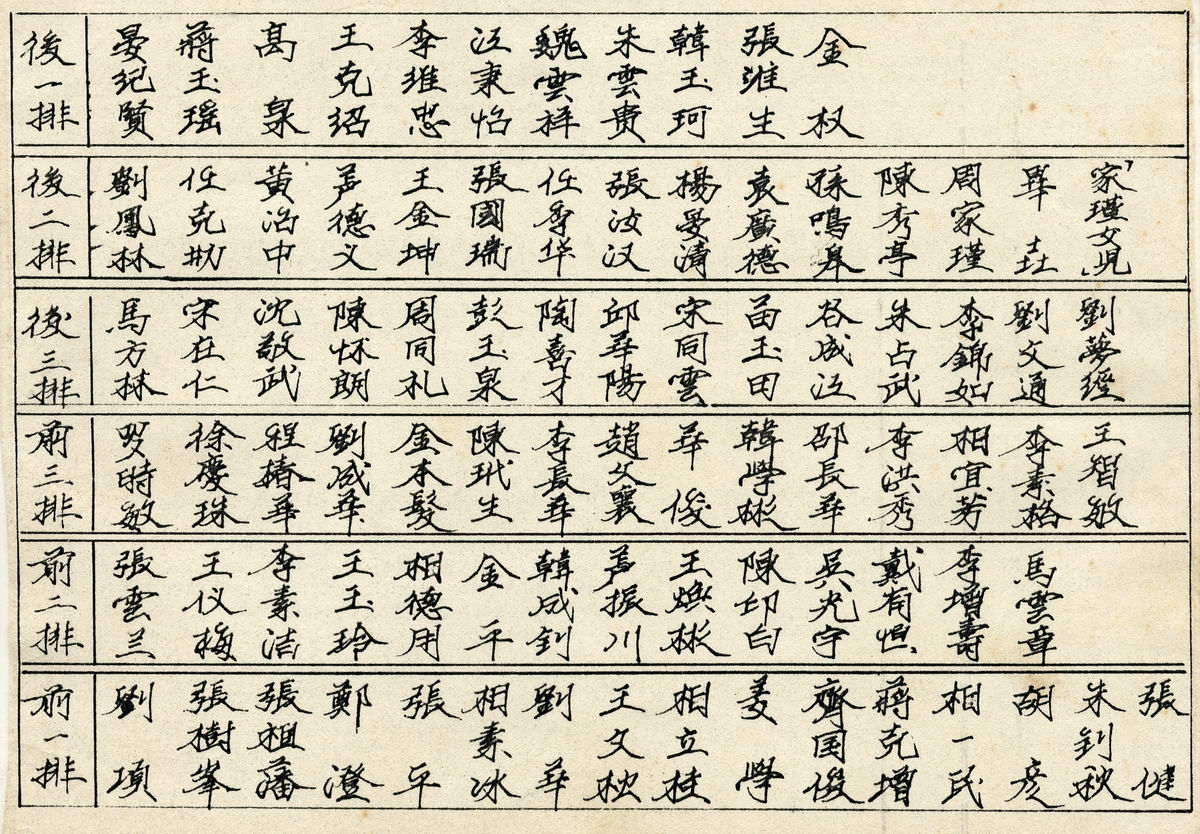 後一排 晏纪賢 蔣玉瑶 高泉 王克绍 李維忠 江秉怡 魏雲祥 朱雲贵 韓玉珂 張維生 金权
後二排 劉鳳林 任克勑 黄治中 芦德义 王金坤 張國瑞 任季华 張汝汉 楊晏清 袁廣德 孫鳴皋 陳秀亭 周家瑾 畢垚 家瑾女児
後三排 馬方林 宋在仁 沈敬武 陳怀朗 周同礼 彭玉泉 陶喜才 邱華陽 宋同雲 苗玉田 谷成江 朱占武 李錦如 劉文通 劉夢經
前三排 時敏 徐慶珠 程椿華 劉成華 金本髮 陳玳生 李長華 趙文襄 華俊 韓學彬 邵長華 李洪秀 相宜芳 李素梧 王智敏
前二排 張雲兰 王仪梅 李素洁 王玉玲 相德用 金平 韓成釗 芦振川 王焕彬 陳邱白 吳允宇 戴有恒 李增壽 馬雲章
前一排 劉項 張樹峯 張祖藩 鄭澄 張平 相素冰 劉華 王文秋 相立桂 姜學 齊国俊 蔣克增 相一民 胡彦 朱釗秋 張健